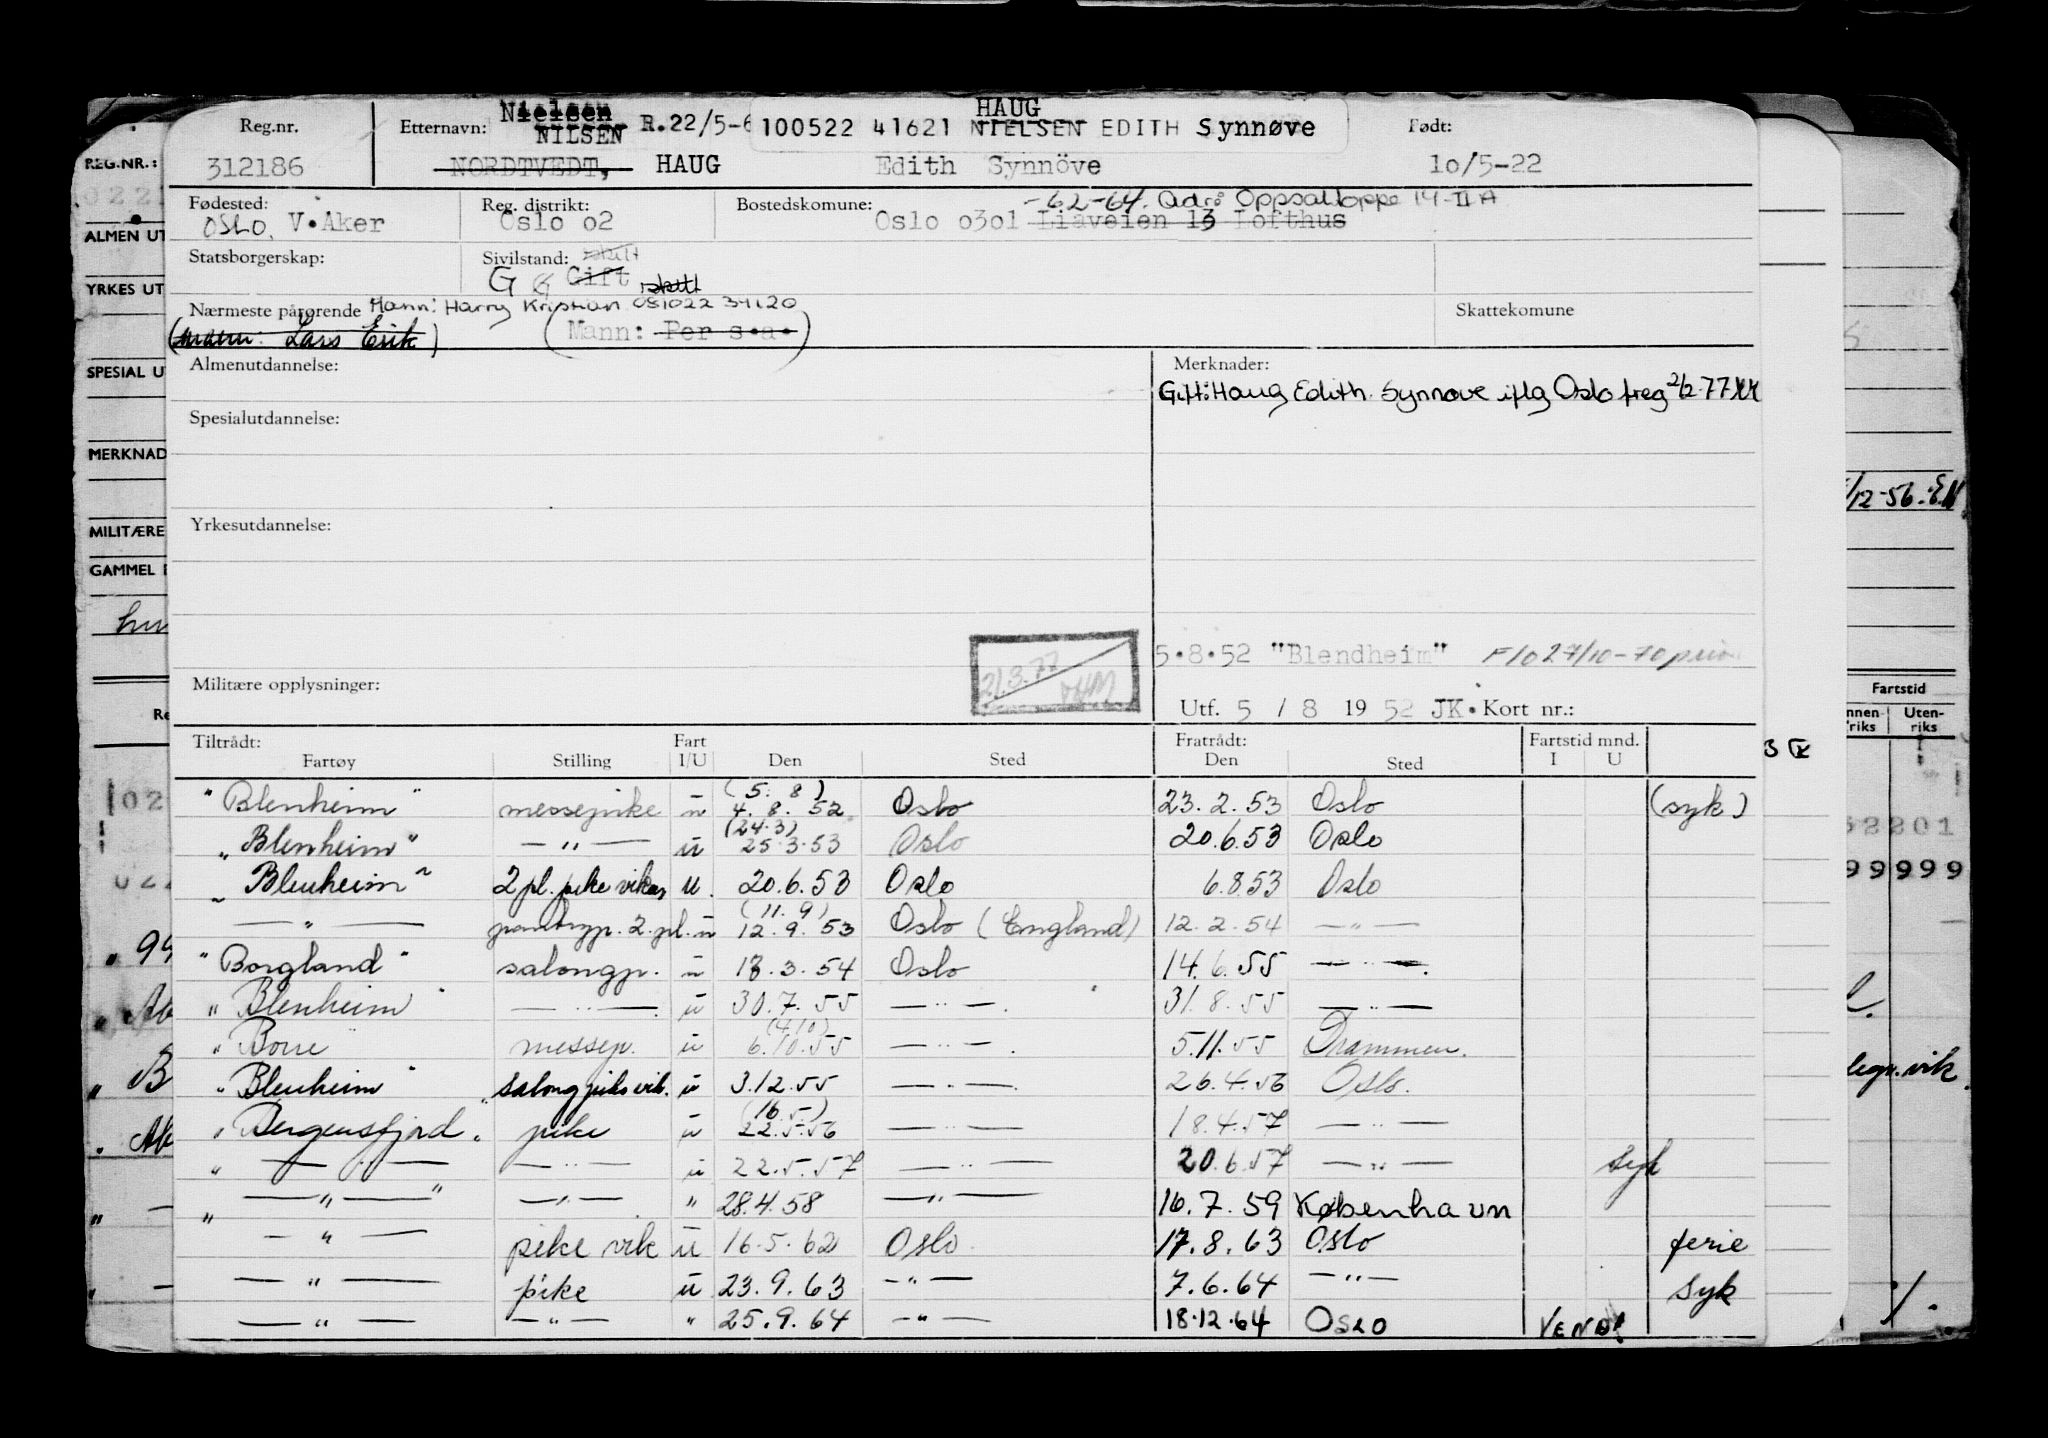 HAUG
Reg.nr. Etternavn: Nielsen R.22/5-6 100522 41621 NIELSEN EDITH Synnøve Født:
NILSEN
312186 NORDTVEDT, HAUG Edith Synnöve 10/5-22
Fødested: Reg. distrikt: Bostedskomune: -62-64. Adr: Oppsaltoppe 14-II A
OSLO, V.Aker Oslo o2 Oslo o3ol Liaveien 13 Lofthus
Statsborgerskap: Sivilstand:
G Gift skilt
Nærmeste pårørende Mann: Harry Kristian 081022 34120 Skattekomune
(Mann: Lars Erik) (Mann: Per s.a.)
Almenutdannelse: Merknader:
Gift: Haug Edith Synnøve iflg Oslo freg 2/2-77
Spesialutdannelse:
Yrkesutdannelse:
5.8.52 "Blendheim" F/O 27/10-70
21.3.77
Militære opplysninger: Utf. 5 / 8 19 52 JK. Kort nr.:
Tiltrådt: Fart Fratrådt: Fartstid mnd.
Fartøy Stilling I/U Den Sted Den Sted I U
"Blenheim" messepike u (5. 8) 4. 8. 52 Oslo 23. 2. 53 Oslo (syk)
"Blenheim" — " — u (24.3) 25.3.53 Oslo 20.6.53 Oslo
"Blenheim" 2 pl. pike vikar u. 20.6.53 Oslo 6.8.53 Oslo
— " — 2. pl. u (11. 9) 12. 9. 53 Oslo (England) 12. 2. 54 — " —
"Borgland" salongp. u 18. 3. 54 Oslo 14. 6. 55 — " —.
"Blenheim" — " —. u 30. 7. 55 — " —. 31. 8. 55 — " —
"Borre messep. u (4/10) 6.10.55 — " —. 5.11.55 Drammen.
"Blenheim" salongpike vik. u 3.12.55 — " —. 26.4.56 Oslo.
"Bergensfjord" pike u (16.5.) 22.5.56 — " — 18.4.57 — " —
" — " — — " — u 22.5.57 — " — 20.6.57 — " — syk
" — " — " — " — " 28.4.58 — " — 16.7.59 København
— " — pike vik u 16.5.62 Oslo. 17.8.63 Oslo ferie
— " — pike u 23.9.63 — " — 7.6.64 — " — syk
— " — — " — " 25.9.64 — " — 18.12.64 OSLO VEND!
REG.NR.:
ALMEN UT
YRKES UT
SPESIAL U
MERKNAD
MILITÆRE
GAMMEL
Re
/12-56.
Fartstid
nnenriks Utenriks
52201
99999